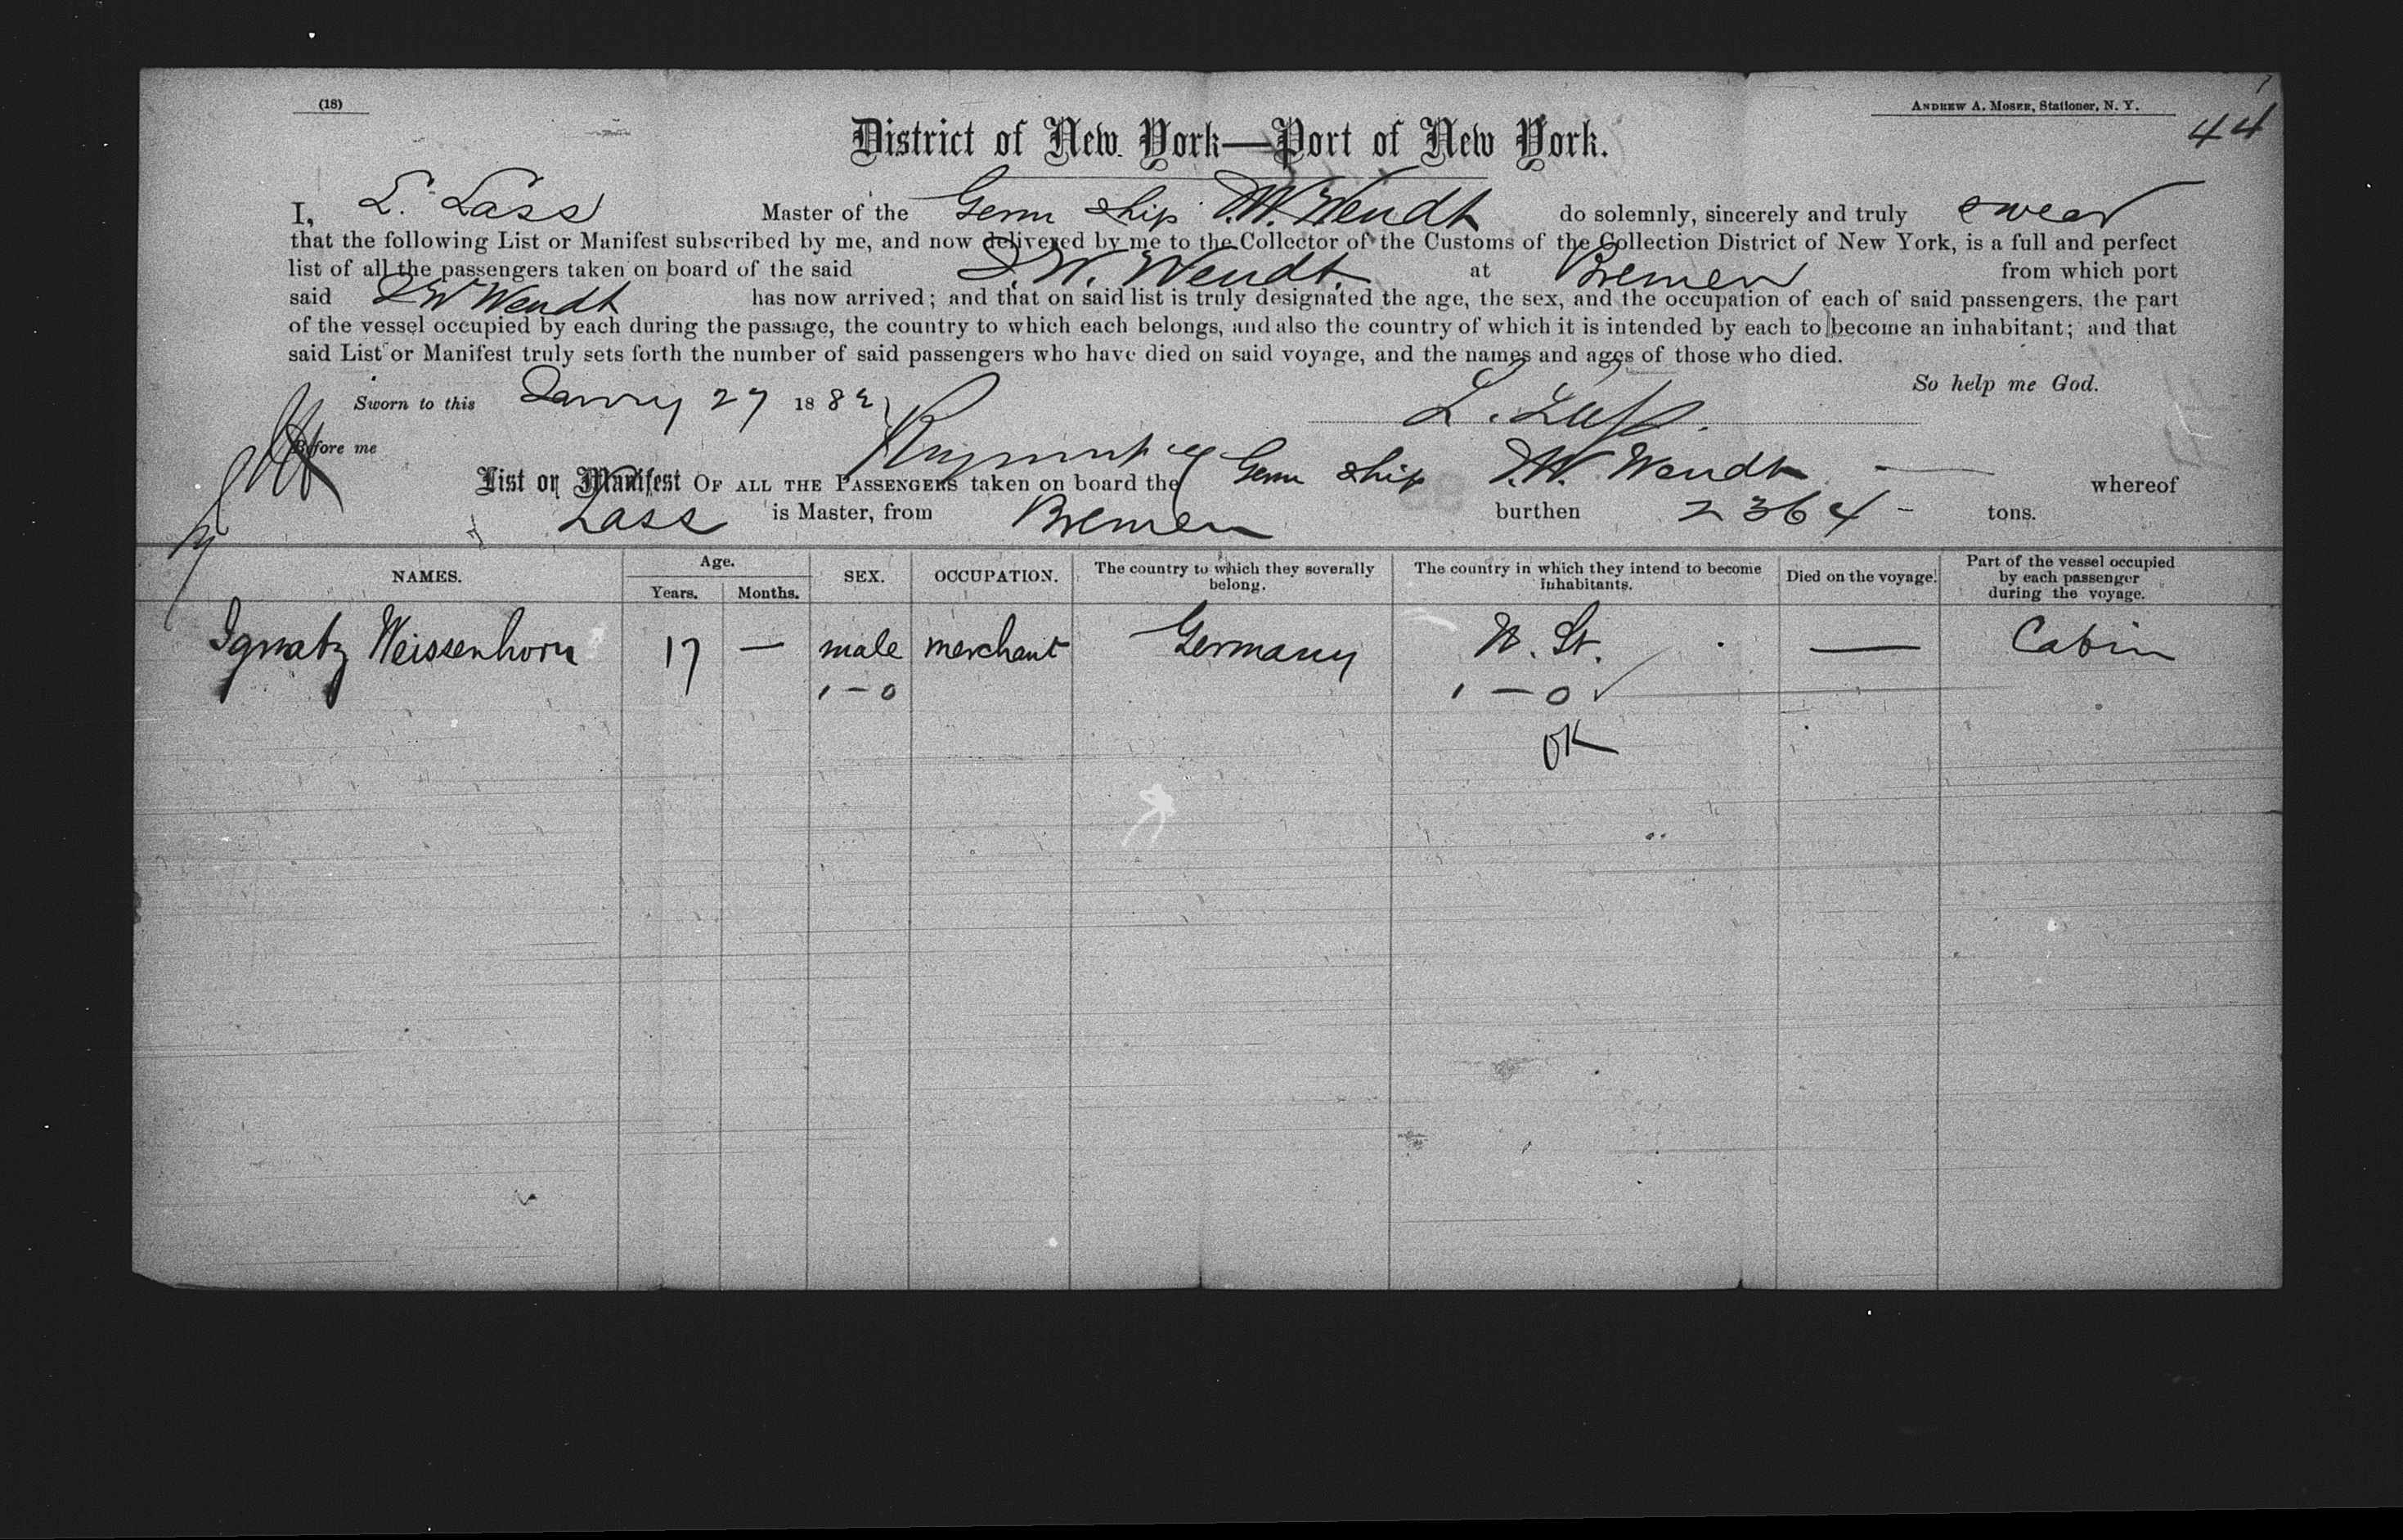 (18)
ANDREW A. MOSER, Stationer, N. Y.
44
District of New York—Port of New York.
I, L. Lass Master of the Germ ship J.W. Wendt do solemnly, sincerely and truly swear
that the following List or Manifest subscribed by me, and now delivered by me to the Collector of the Customs of the Collection District of New York, is a full and perfect
list of all the passengers taken on board of the said J.W. Wendt. at Bremen from which port
said J W Wendt has now arrived; and that on said list is truly designated the age, the sex, and the occupation of each of said passengers, the part
of the vessel occupied by each during the passage, the country to which each belongs, and also the country of which it is intended by each to become an inhabitant; and that
said List or Manifest truly sets forth the number of said passengers who have died on said voyage, and the names and ages of those who died.
So help me God.
Sworn to this 27 1882
L. Lass.
Before me
List or Manifest OF ALL THE PASSENGERS taken on board the Germ ship J.W. Wendt whereof
Lass is Master, from Bremen burthen 2364 - tons.
NAMES. Age. Years. Months. SEX. OCCUPATION. The country to which they severally belong. The country in which they intend to become inhabitants. Died on the voyage. Part of the vessel occupied by each passenger during the voyage.
Ignatz Weissenhorn 17 — male merchant Germany N. St. — Cabin
1 - 0 1 — 0 ✓
OK